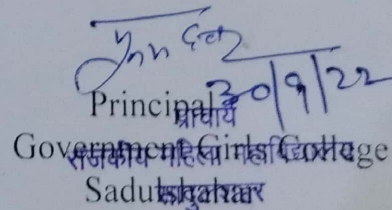 30/9/22
Principal
प्राचार्य
Government Girls College
राजकीय महिला महाविद्यालय
Sadulshahar
सादुलशहर